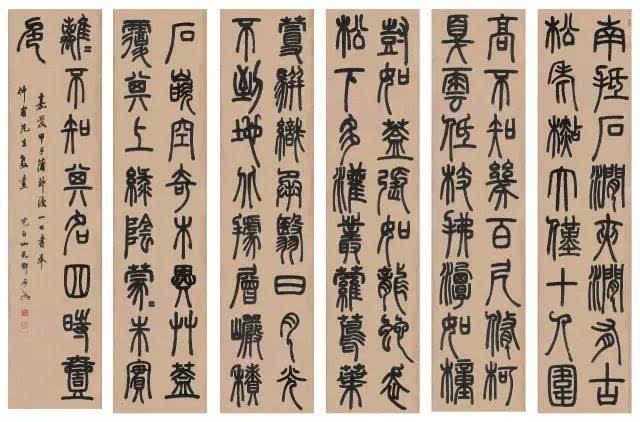 南抵石澗夾澗有古
松老杉大僅十人圍
高不知幾百尺脩柯
戛雲低枝拂潭如幢
豎如蓋張如龍蛇走
松下多灌叢蘿蔦葉
蔓駢織承翳日月光
不到地北據層巖積
石嵌空奇木異艸蓋
覆其上綠陰蒙〻朱實
離〻不知其名四時壹
色
嘉慶甲子蒲節後一日書奉
仲甫先生教 完白山民鄧石如